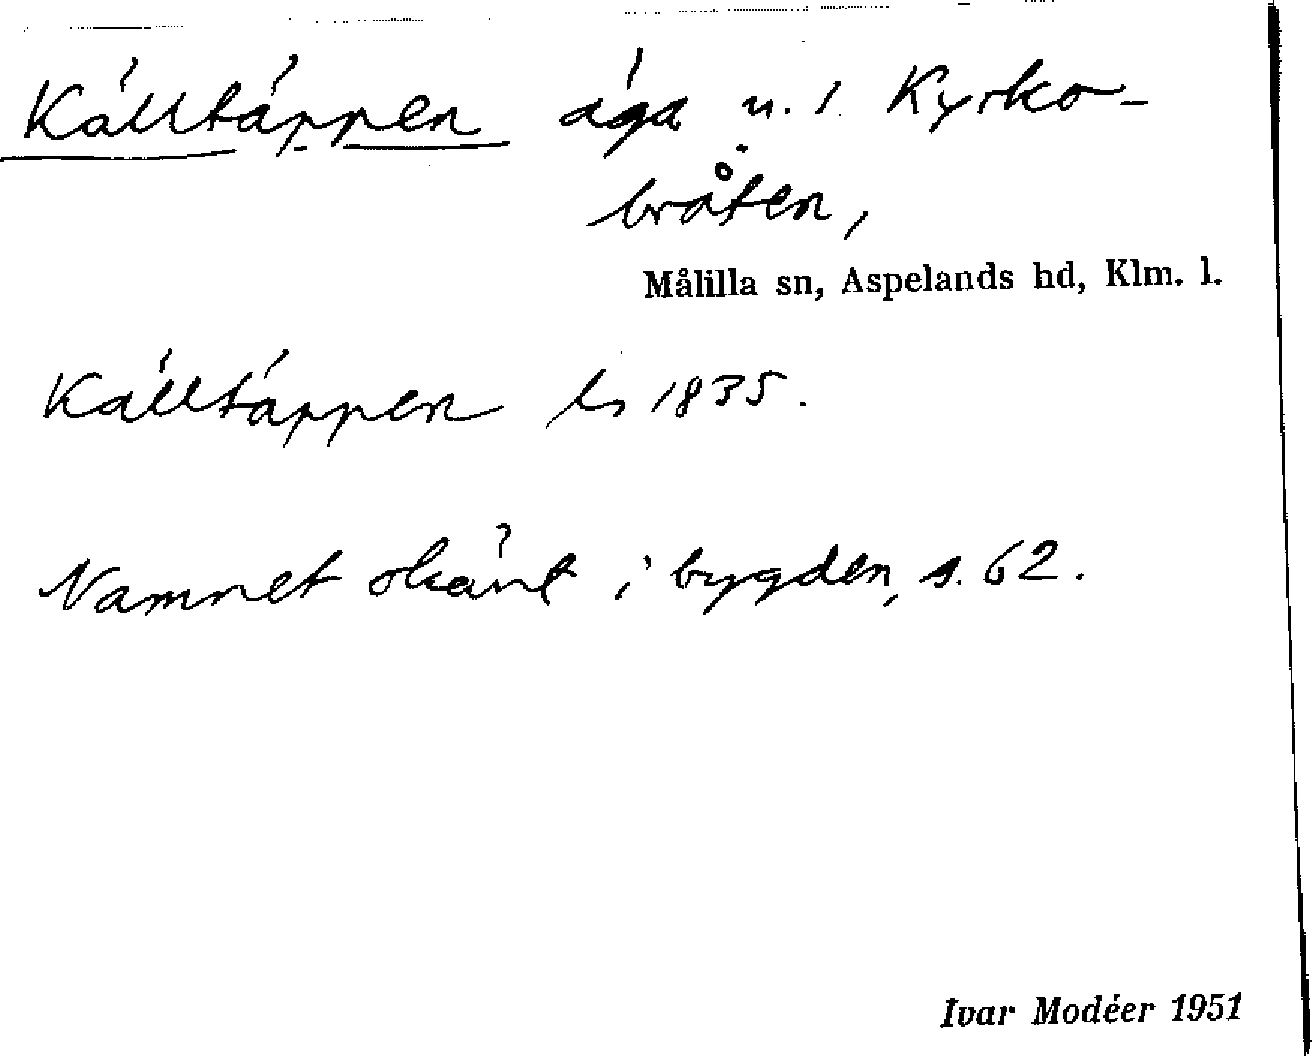 Källtäppen äga u. l. Kyrko-
bråten,
Målilla sn, Aspelands hd, Klm. l.
Källtäppen ls 1835.
Namnet okänt i bygden, s. 62.
Ivar Modéer 1951